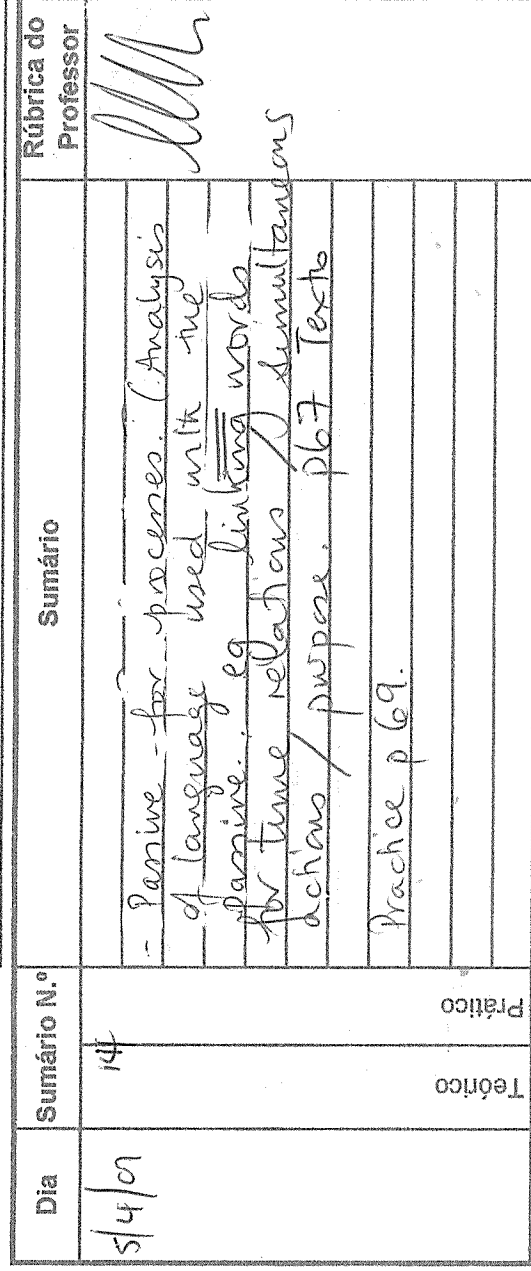 Dia
Sumário N.º
Sumário
Rúbrica do
Professor
5/4/01
14
Teórico
Prático
- Passive - for processes. (Analysis
of language used with the
Passive. eg linking words
for time relations / simultaneous
actions / purpose. p67 Texto
Practice p 69.